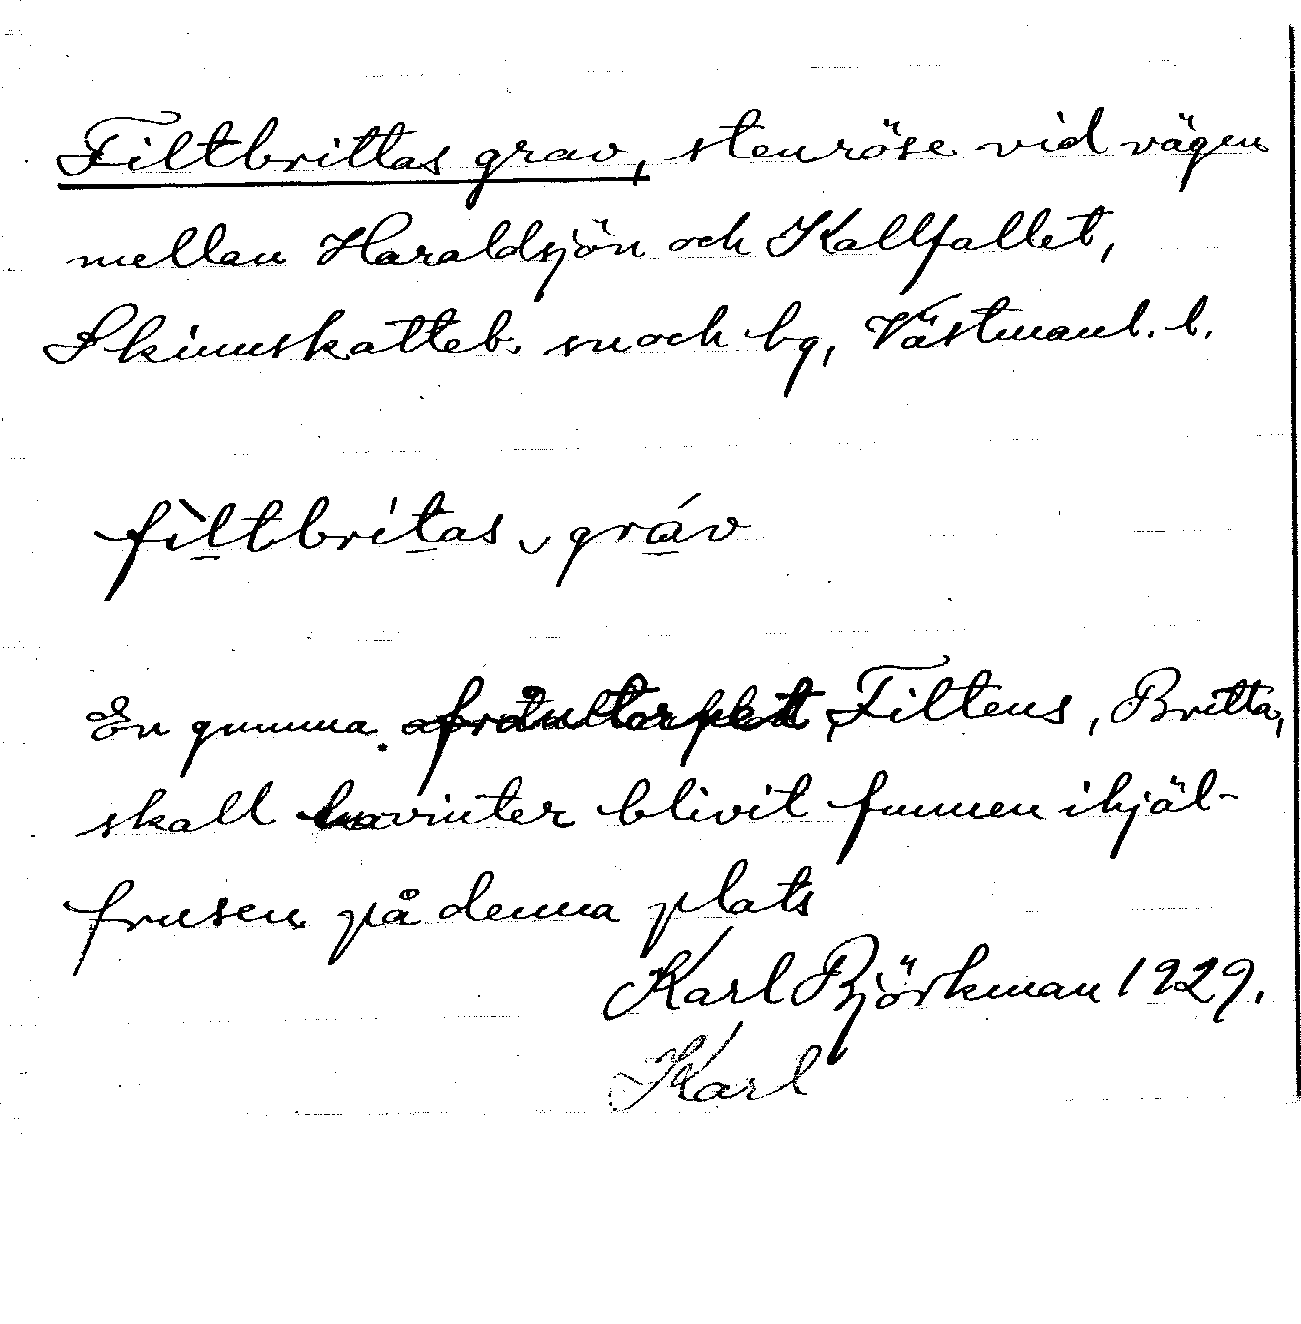 Filtbrittas grav, stenröse vid vägen
mellan Haraldsjön och Kallfallet,
Skinnskatteb. sn och bg, Västmanl. l.
fìltbrítas ᴗ gráv
En gumma Filtens, Britta,
skall vinter blivit funnen ihjäl-
frusen på denna plats
Karl Björkman 1929.
Karl